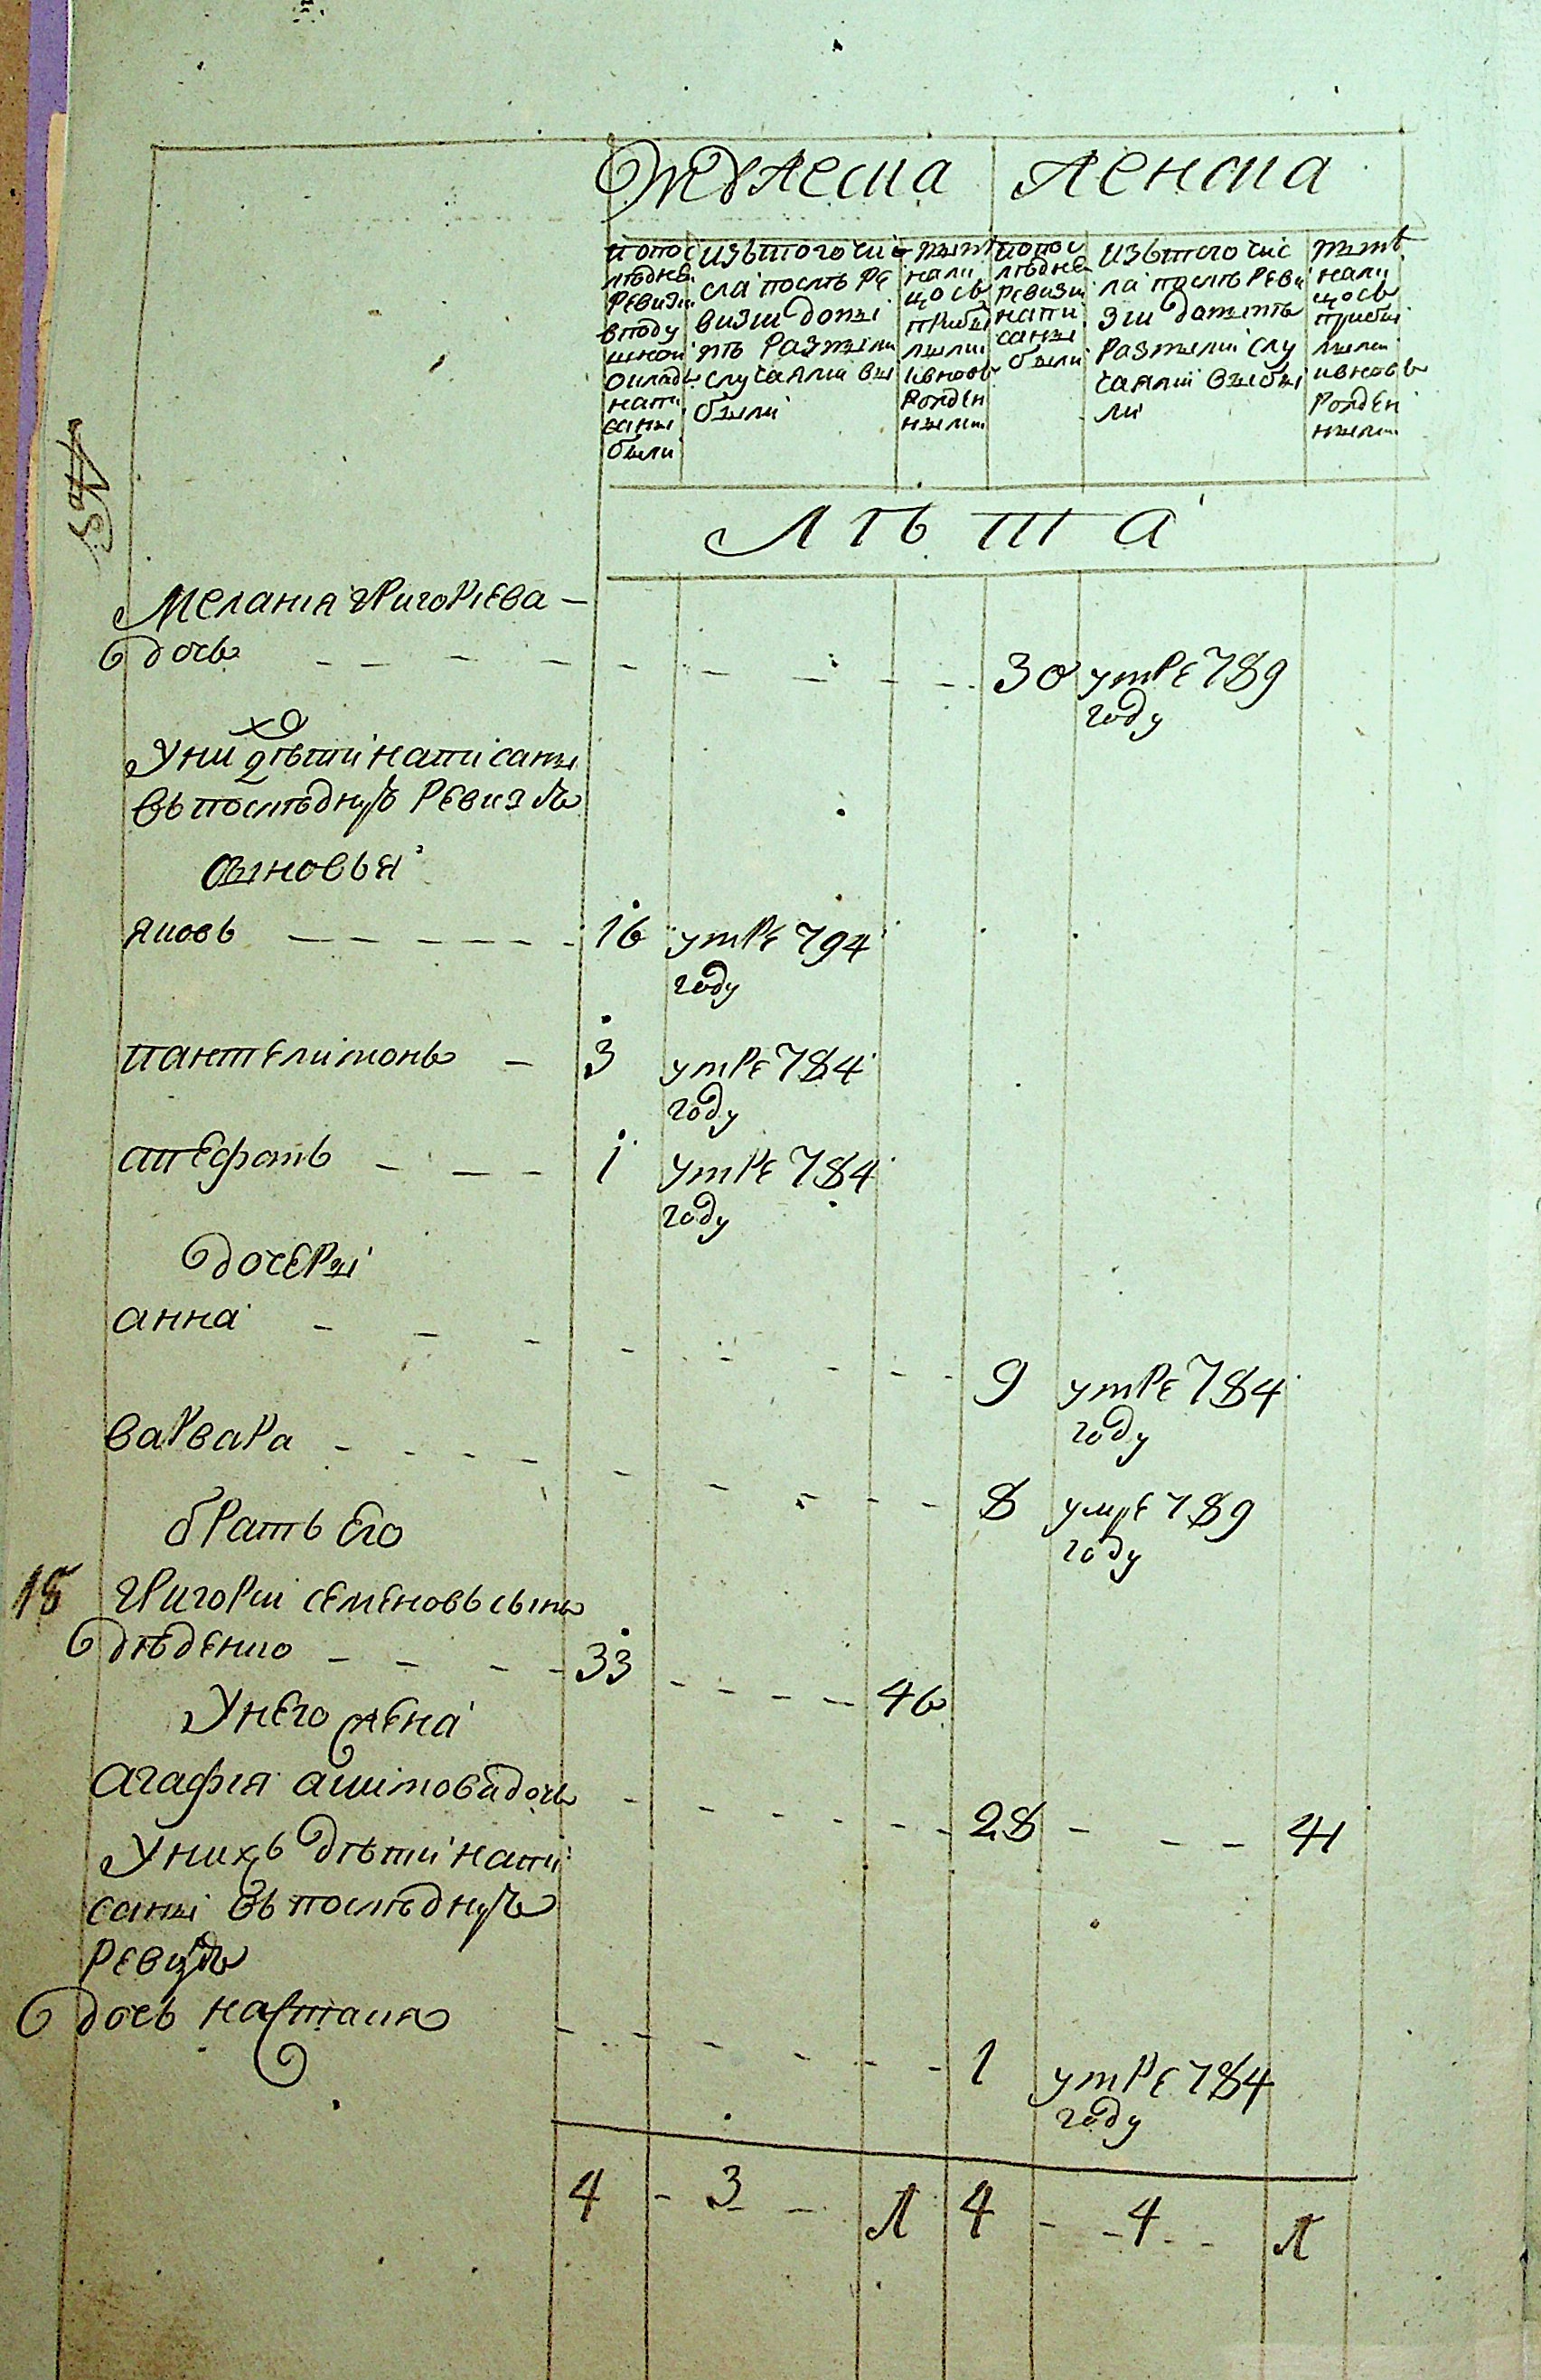 Мужеска Женска
По последнеи ревизии в подушной оклад написаны были
Изъ того числа после ревизии до ныне разными случаями выбыли
ныне на лицо съ прибылыми и вновь рожденными
По последнеи ревизии написаны были
Изъ того числа после ревизии до ныне разными случаями выбыли
ныне на лицо съ прибылыми и вновь рожденными
Лѣта
Меланія григоріева —
дочь — — — — — — — — — 30 умре 789
году
у них дѣти написаны
въ последную ревизію
сыновья
яковъ — — — — — — 16 умре 794
году
пантелимонъ — 3 умре 784
году
стефанъ — — — 1 умре 784
году
дочеры
анна — — — — — — — — 9 умре 784
году
варвара — — — — — — — — — 8 умре 789
году
братъ его
15 григорій семеновъ сынъ
дѣденко — — — — 33 — — — — 46
у него жена
агафія акимова дочь — — — — — — 28 — — — 41
у нихъ дѣти напи
саны въ последную
ревизію
дочь настасия — — — — — — 1 умре 784
году
4 — 3 — 1 4 — 4 — 1